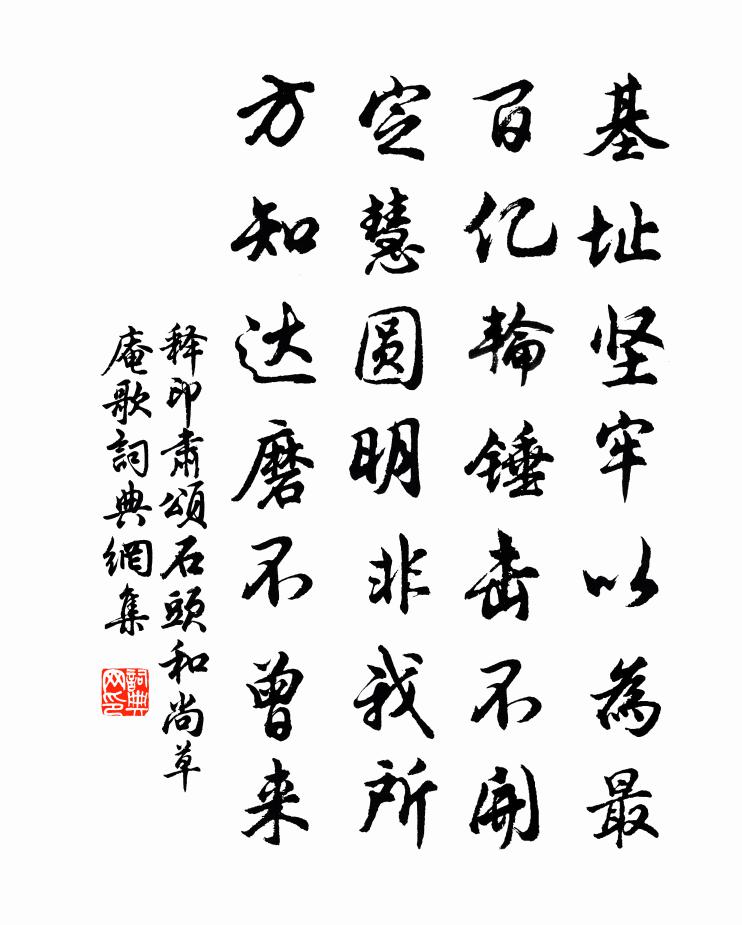 基址坚牢以為最
百亿輪錘击不開
定慧圆明非我所
方知达磨不曾来
释印肃頌石頭和尚草
庵歌詞典網集
詞典
网印